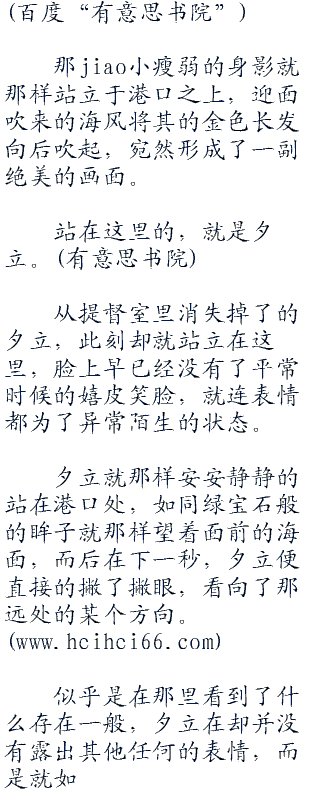 (百度“有意思书院”)
那jiao小瘦弱的身影就
那样站立于港口之上，迎面
吹来的海风将其的金色长发
向后吹起，宛然形成了一副
绝美的画面。
站在这里的，就是夕
立。(有意思书院)
从提督室里消失掉了的
夕立，此刻却就站立在这
里，脸上早已经没有了平常
时候的嬉皮笑脸，就连表情
都为了异常陌生的状态。
夕立就那样安安静静的
站在港口处，如同绿宝石般
的眸子就那样望着面前的海
面，而后在下一秒，夕立便
直接的撇了撇眼，看向了那
远处的某个方向。
(www.hcihci66.com)
似乎是在那里看到了什
么存在一般，夕立在却并没
有露出其他任何的表情，而
是就如